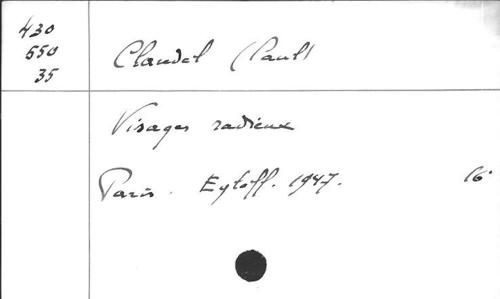 430
550
35
Claudel (Paul)
Visages radieux
Paris. Egloff. 1947. 16°